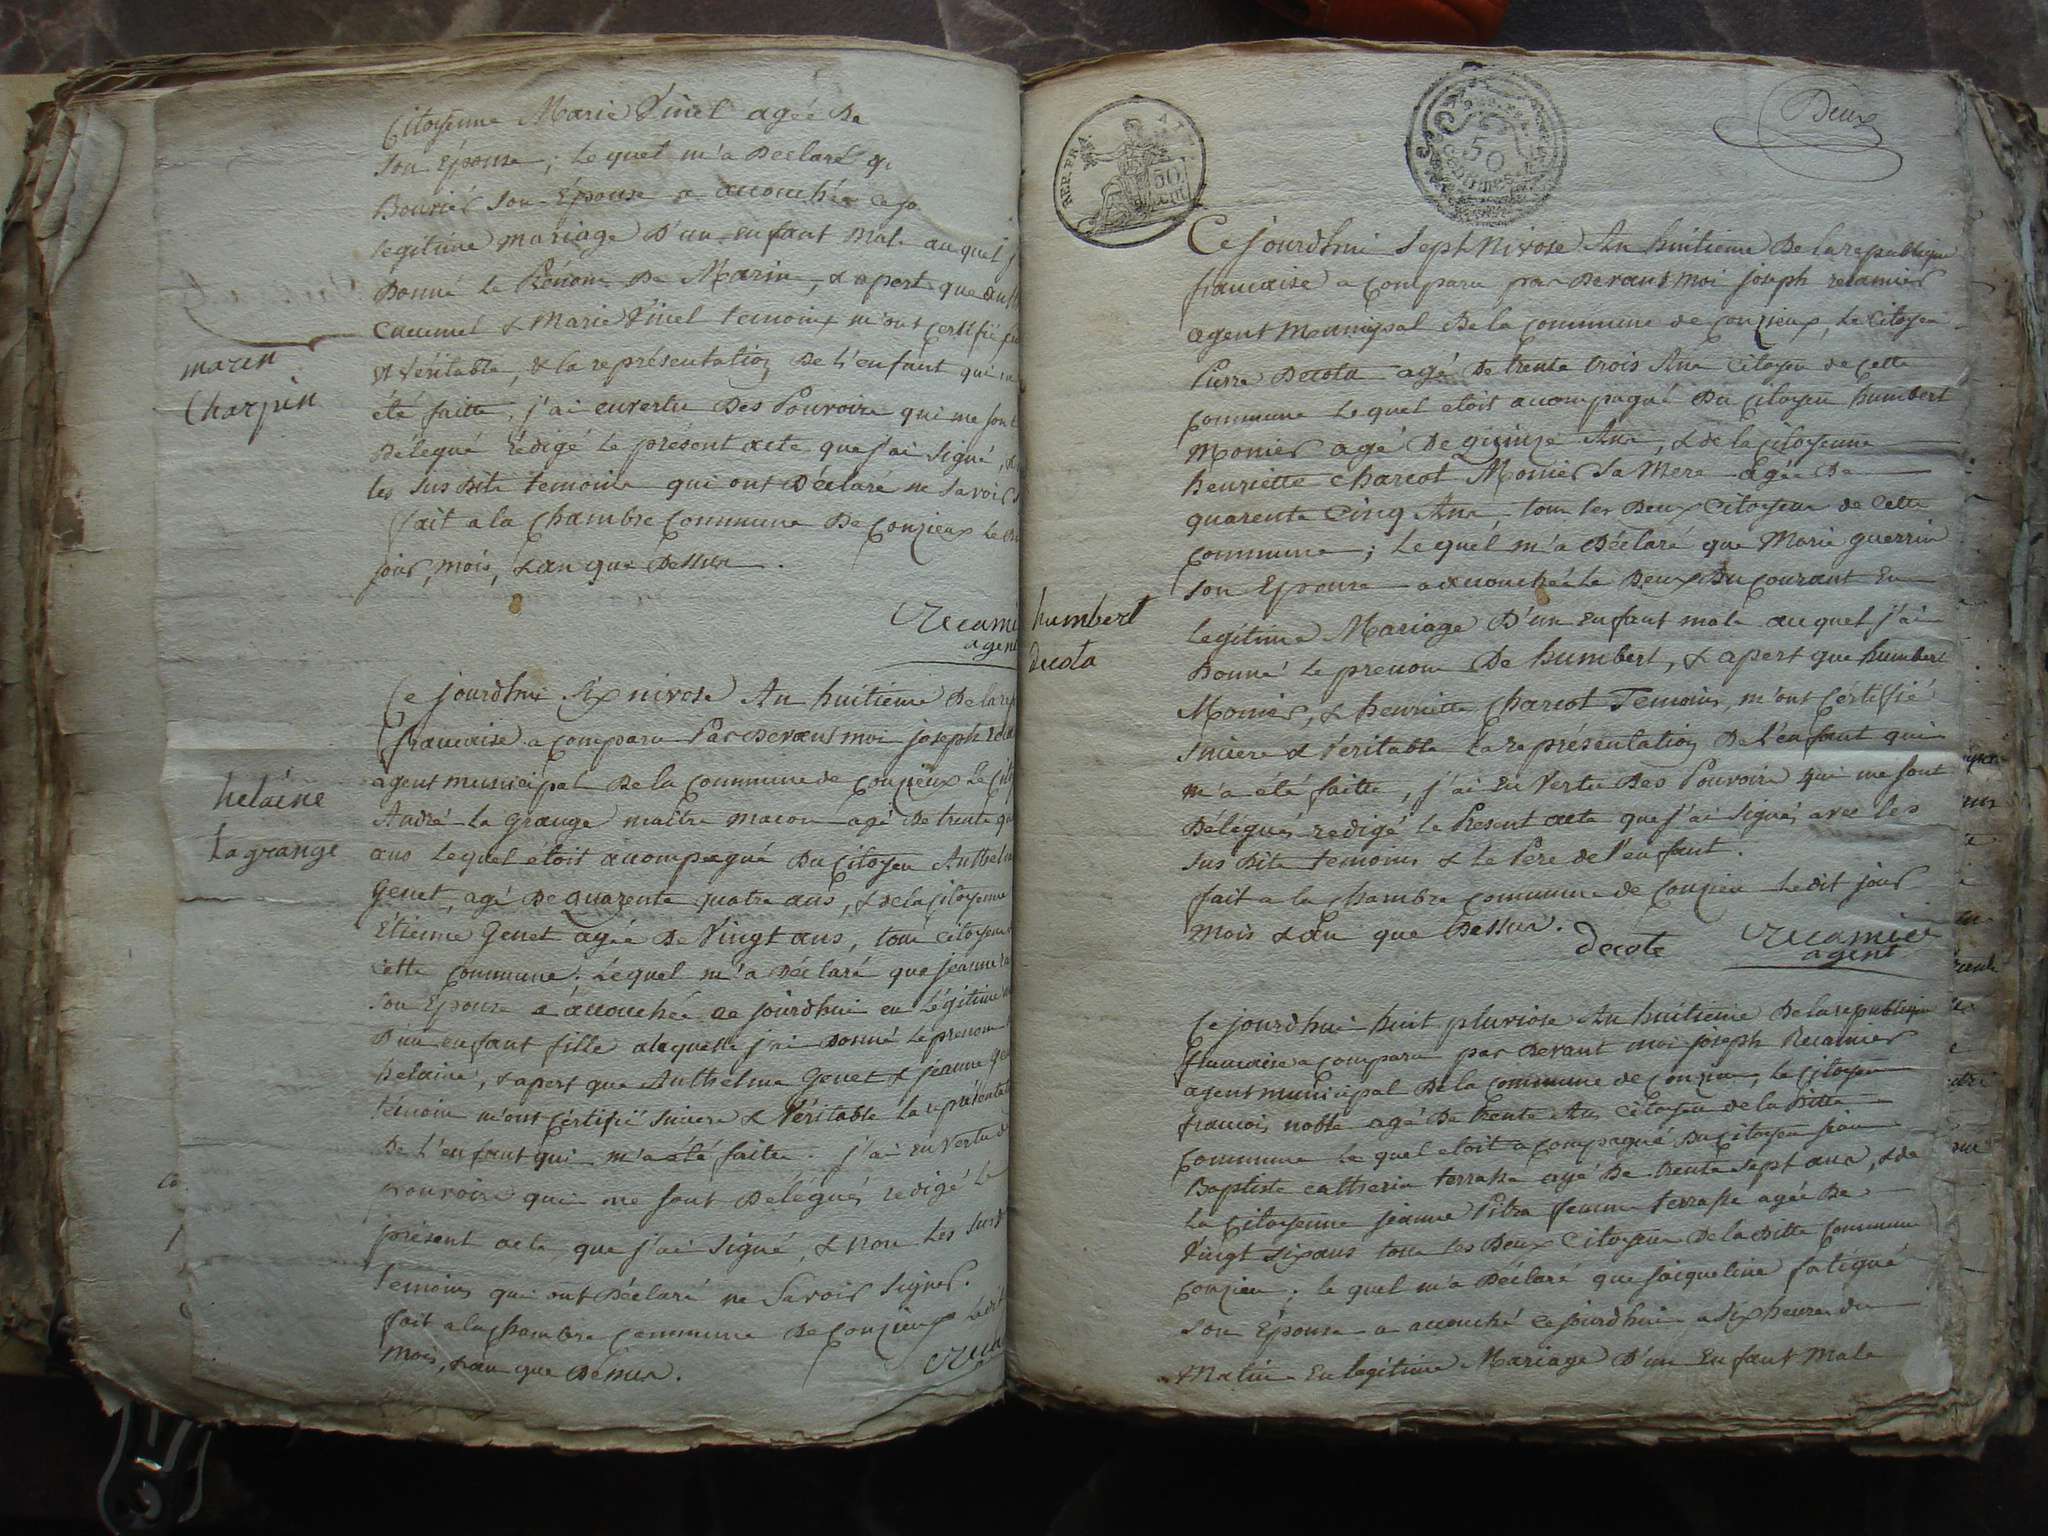 Citoyenne Marie Vinel agée De
son Epouse ; Lequel m'a Declaré q
Bourier son Epouse a accouchée ce jo
legitime mariage D'un enfant male auquel j
Donné le Prénom De Marin, & apert que
& Marie Vinel temoins m'ont certifié
& Véritable, & la représentation De L'enfant qui
été faitte, j'ai envertu Des Pouvoirs qui me sont
Délegué rédigé le présent acte que j'ai signé, &
les sus Dits temoins qui ont Déclaré ne savoir
fait a la Chambre Commune De Conzieux Le
jour, mois, & an que Dessus.
marin
Charpin
Recami
agent
Ce jourdhui six nivose An huitieme De la rep
francaise a comparu Par Devant moi joseph reca
agent municipal De la Commune de Conzieux Le Cit
André La grange maitre macon agé De trente qu
ans Lequel étoit acompagné Du Citoyen Anthelme
Genet, agé De quarente quatre ans, & de la Citoyenne
Etienne Genet agée De Vingt ans, tous Citoyens
cette Commune ; Lequel m'a Déclaré que jeanne
son Epouse a accouchée ce jourdhui en Légitime
D'un enfant fille alaquelle j'ai Donné Le prenom
helaine, & apert que Anthelme Genet & jeanne
témoins m'ont Certifié sincere & Véritable La représentat
De L'enfant qui m'a été faitte. j'ai en Vertu D
pouvoirs qui me sont Délégués redigé le
présent acte que j'ai signé, & non Les susd
temoins qui ont Déclaré ne Savoir signer.
fait a la Chambre Commune De Conzieux Ledit
Mois, & an que Dessus.
helaine
Lagrange
REP. FRA.
50
50
centimes
Deux
Ce jourdhui Sept Nivose An huitieme De la republique
francaise a Comparu par Devant moi joseph recamier
agent Municipal De la Commune de Conzieux, Le Citoyen
Pierre Decota agé De trente trois Ans Citoyen de cette
Commune Lequel etoit acompagné Du Citoyen humbert
Monier agé De quinze Ans, & de la Citoyenne
henriette Charcot Monier sa Mere agée De
quarente Cinq Ans, tous les Deux Citoyens de Cette
Commune ; Lequel m'a Déclaré que Marie guerrin
son Epouse a accouchée Le Deux Du Courant En
Legitime Mariage D'un enfant male auquel j'ai
Donné Le prenom De humbert, & apert que humbert
Monier, & henriette Charcot Temoins, m'ont Certifié
sincere & Véritable La représentation De L'enfant qui
m'a été faitte, j'ai En Vertu Des Pouvoirs qui me sont
Délegués redigé Le Present acte que j'ai signés avec les
sus Dits temoins & Le Pere de l'enfant.
fait a la Chambre Commune de Conzieu Ledit jour
Mois & an que Dessus.
humbert
decota
decote
Recamier
agent
Ce jourdhui huit pluviose An huitieme De la republique
francaise a comparu par Devant moi joseph Recamier
agent municipal De la Commune de Conzieu, Le Citoyen
francois noble agé De trente Ans Citoyen de la Ditte
Commune Lequel etoit acompagné Du Citoyen jean
Baptiste Catherin terrasse agé De trente sept ans, & de
La Citoyenne jeanne Pitra femme terrasse agée De
Vingt six ans tous Les Deux Citoyens De la Ditte Commune
Conzieu ; Lequel m'a Déclaré que jacqueline fatigué
son Epouse a accouché Ce jourdhui a six heures du
Matin En legitime Mariage D'un Enfant Male